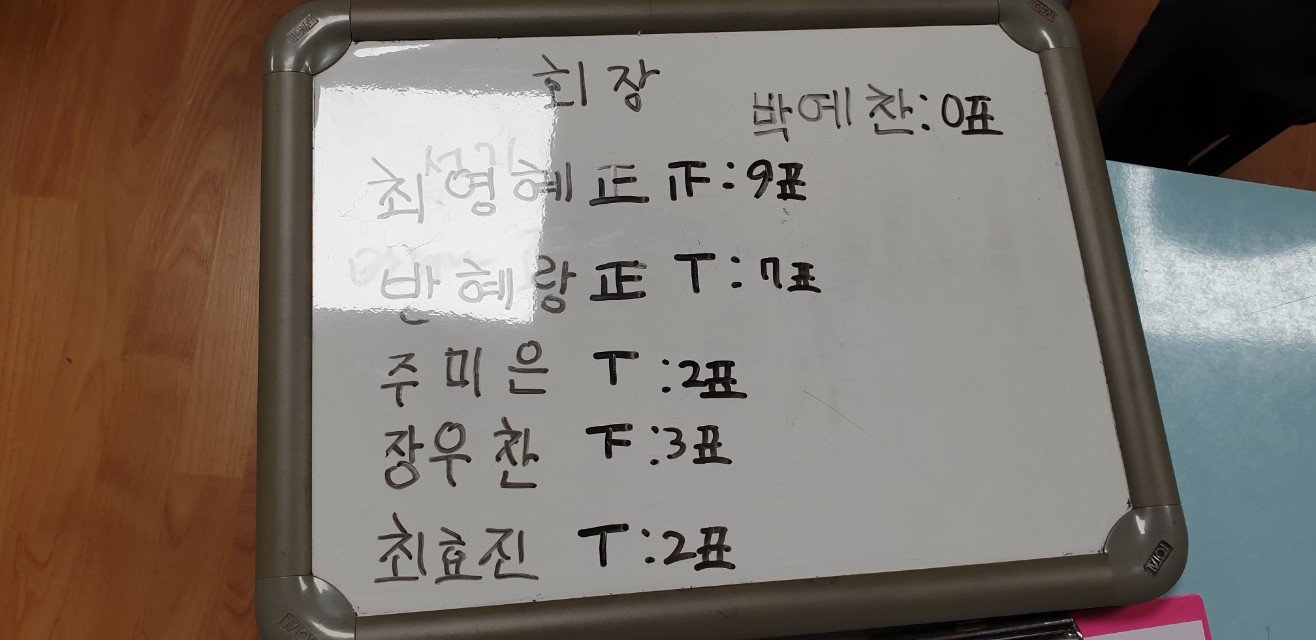 회장
박예찬:0표
최영혜 正 正:9표
반혜랑 正 T:7표
주미은 T:2표
장우찬 F:3표
최효진 T:2표